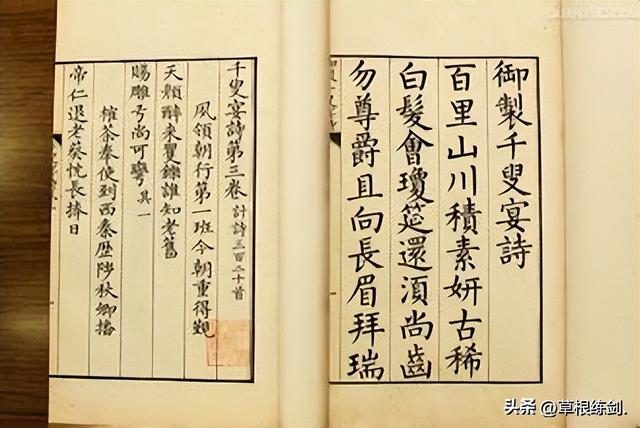 御製千叟宴詩
百里山川積素妍古稀
白髮會瓊筵還須尚齒
勿尊爵且向長眉拜瑞
千叟宴詩第三卷 計詩三百二十首
夙領朝行第一班今朝重得觀
天顏醉来矍鑠誰知老舊
賜雕弓尚可彎 其一
榷茶奉使到西秦歷陟秋卿播
帝仁退老葵忱長捧日
头条 @草根练剑.